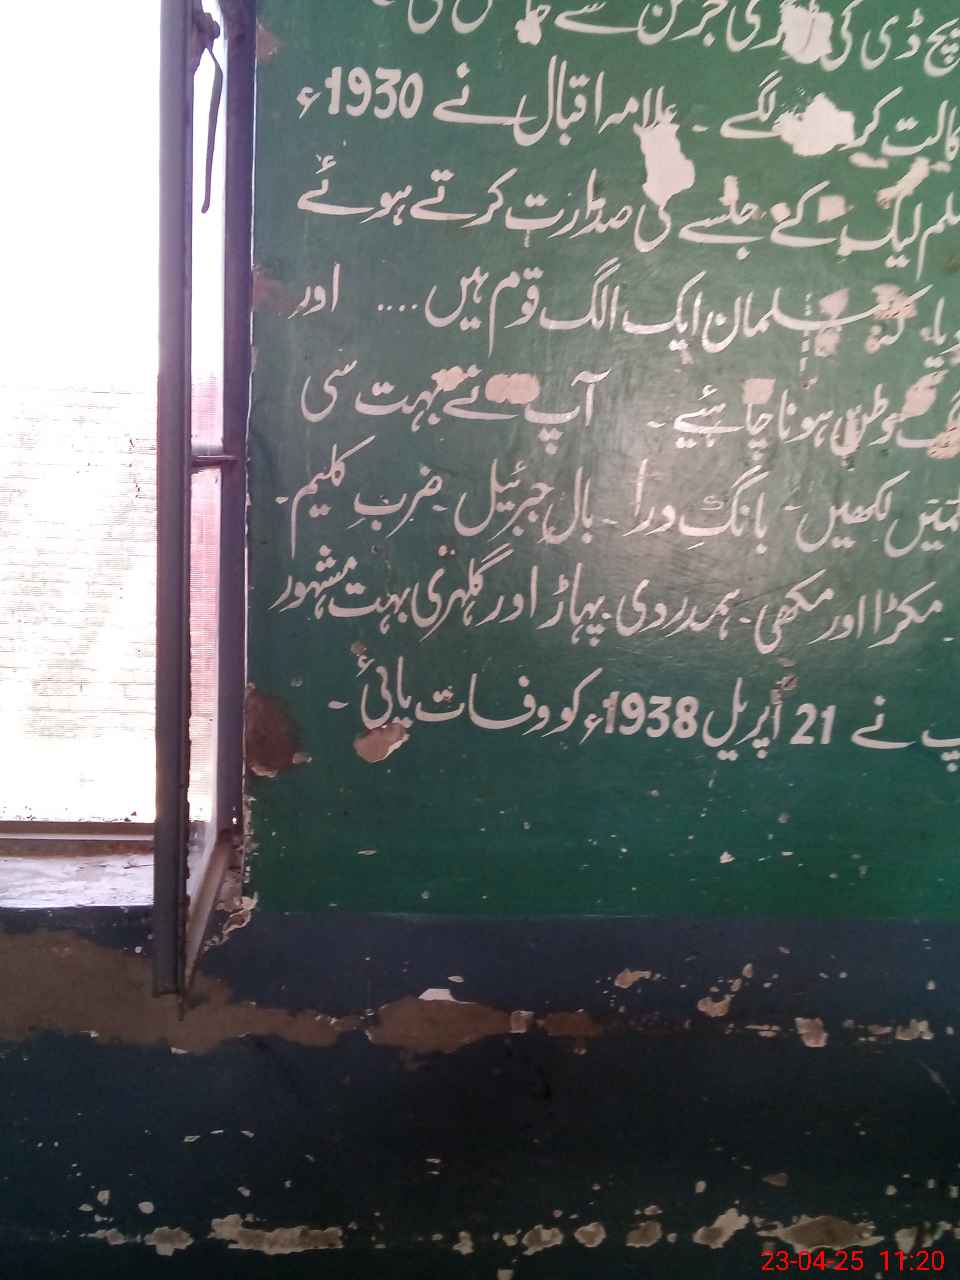 پیچ ڈی کی ڈگری جرمن سے حاصل کی
کالت کر لگے ۔ علامہ اقبال نے 1930ء
سلم لیگ کے جلسے کی صدارت کرتے ہوئے
یا کہ مسلمان ایک الگ قوم ہیں .... اور
وطن ہونا چاہئیے ۔ آپ نے بہت سی
لکھیں ۔ بانگِ درا ۔ بالِ جبرئیل ۔ ضربِ کلیم ۔
۔ مکڑا اور مکھی ۔ ہمدردی ۔ پہاڑ اور گلہری بہت مشہور
پ نے 21 اپریل 1938ء کو وفات پائی ۔
23-04-25 11:20